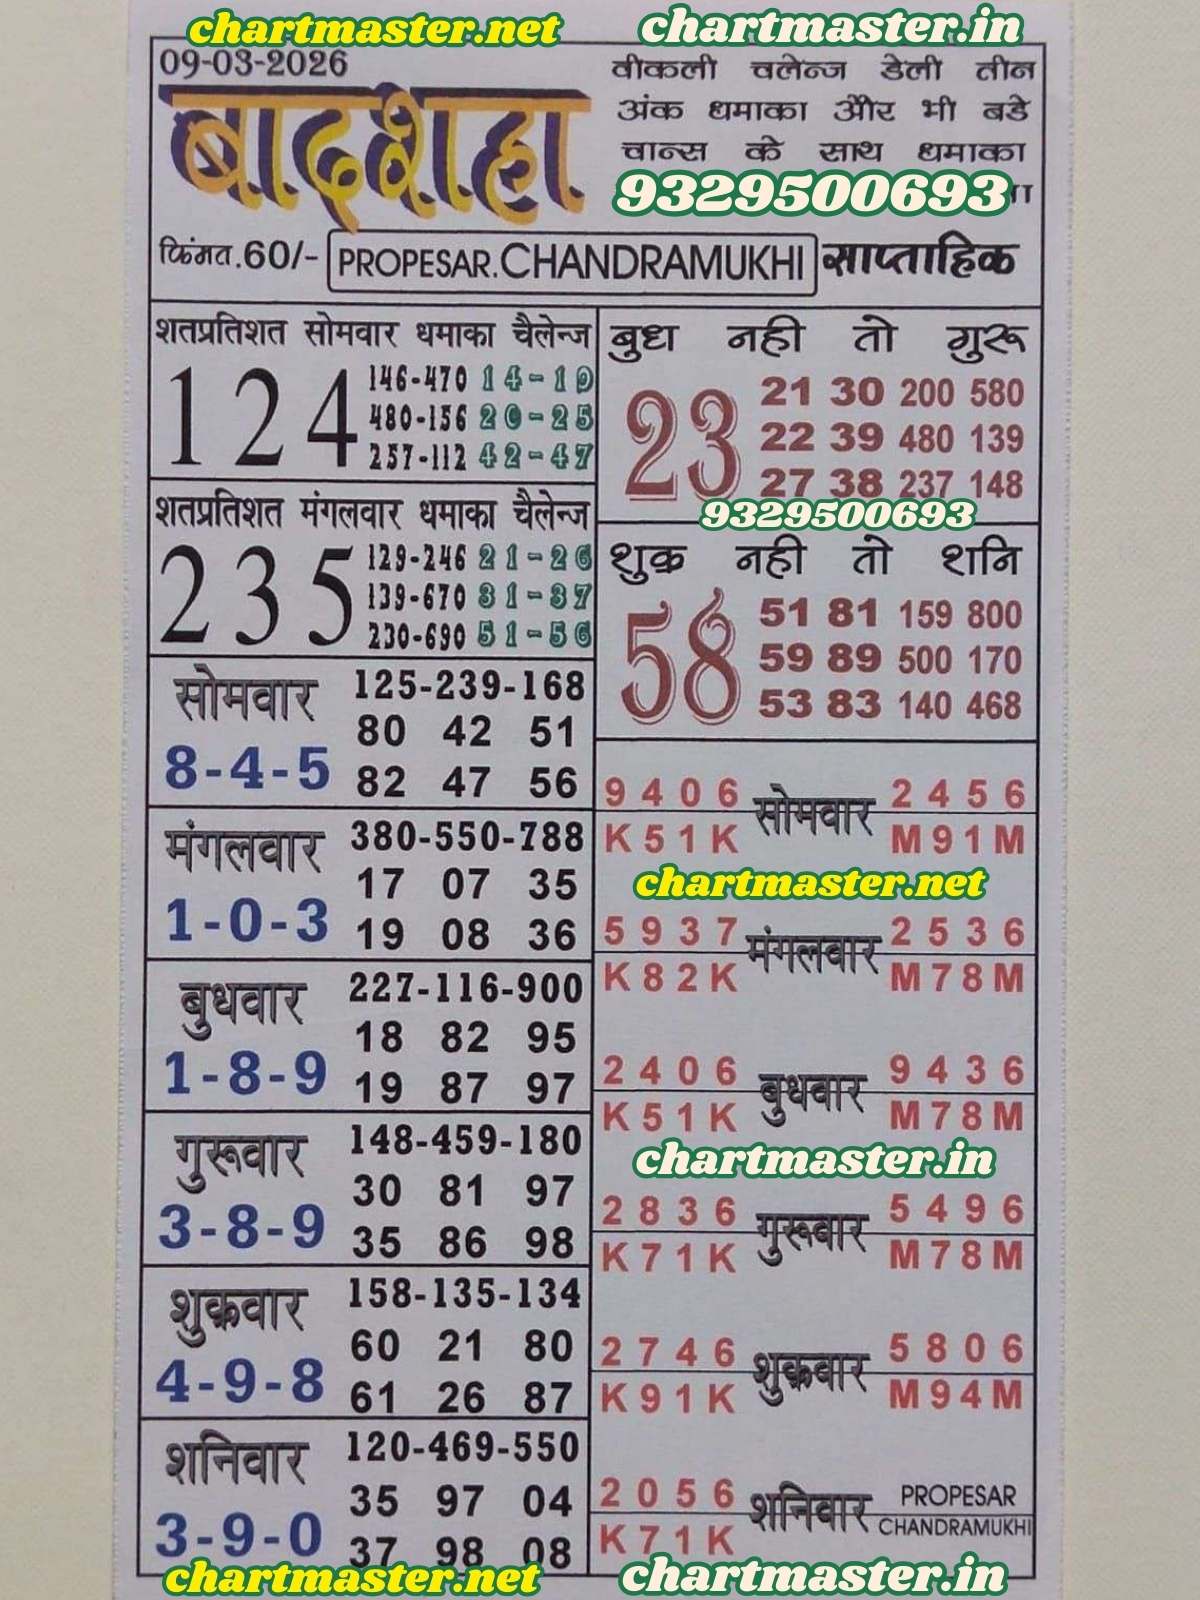 chartmaster.net
chartmaster.in
09-03-2026
बादशहा
वीकली चलेन्ज डेली तीन
अंक धमाका और भी बडे
चान्स के साथ धमाका
9329500693
किंमत.60/-
PROPESAR.CHANDRAMUKHI
साप्ताहिक
शतप्रतिशत सोमवार धमाका चैलेन्ज
124
146-470 14-19
480-156 20-25
257-112 42-47
शतप्रतिशत मंगलवार धमाका चैलेन्ज
235
129-246 21-26
139-670 31-37
230-690 51-56
बुध नही तो गुरू
23
21 30 200 580
22 39 480 139
27 38 237 148
9329500693
शुक्र नही तो शनि
58
51 81 159 800
59 89 500 170
53 83 140 468
सोमवार
8-4-5
125-239-168
80 42 51
82 47 56
मंगलवार
1-0-3
380-550-788
17 07 35
19 08 36
बुधवार
1-8-9
227-116-900
18 82 95
19 87 97
गुरूवार
3-8-9
148-459-180
30 81 97
35 86 98
शुक्रवार
4-9-8
158-135-134
60 21 80
61 26 87
शनिवार
3-9-0
120-469-550
35 97 04
37 98 08
9406 सोमवार 2456
K51K M91M
chartmaster.net
5937 मंगलवार 2536
K82K M78M
2406 बुधवार 9436
K51K M78M
chartmaster.in
2836 गुरूवार 5496
K71K M78M
2746 शुक्रवार 5806
K91K M94M
2056 शनिवार PROPESAR
K71K CHANDRAMUKHI
chartmaster.net
chartmaster.in